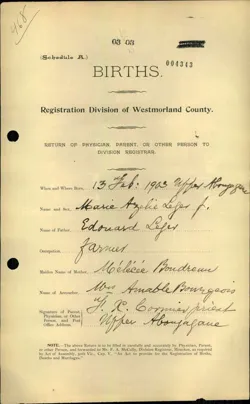 468
03 03
(Schedule A.)
004343
BIRTHS.
Registration Division of Westmorland County.
RETURN OF PHYSICIAN, PARENT, OR OTHER PERSON TO
DIVISION REGISTRAR.
When and Where Born, 13 Feb: 1903 Upper Aboujagane
Name and Sex, Marie Azelie Leger f.
Name of Father, Edouard Leger
Occupation, farmer
Maiden Name of Mother, Mélisée Boudreau
Name of Accoucher, Mrs Amable Bourgeois
Signature of Parent,
Physician, or Other
Person, and Post
Office Address,
F. X. Cormier priest
Upper Aboujagane
NOTE.—The above Return is to be carefully and accurately filled by Physician, Parent,
or other Person, and forwarded to
Division Registrar, Moncton, as required
by Act of Assembly,
Cap. V., "An Act to provide for the Registration of Births,
Deaths and Marriages."